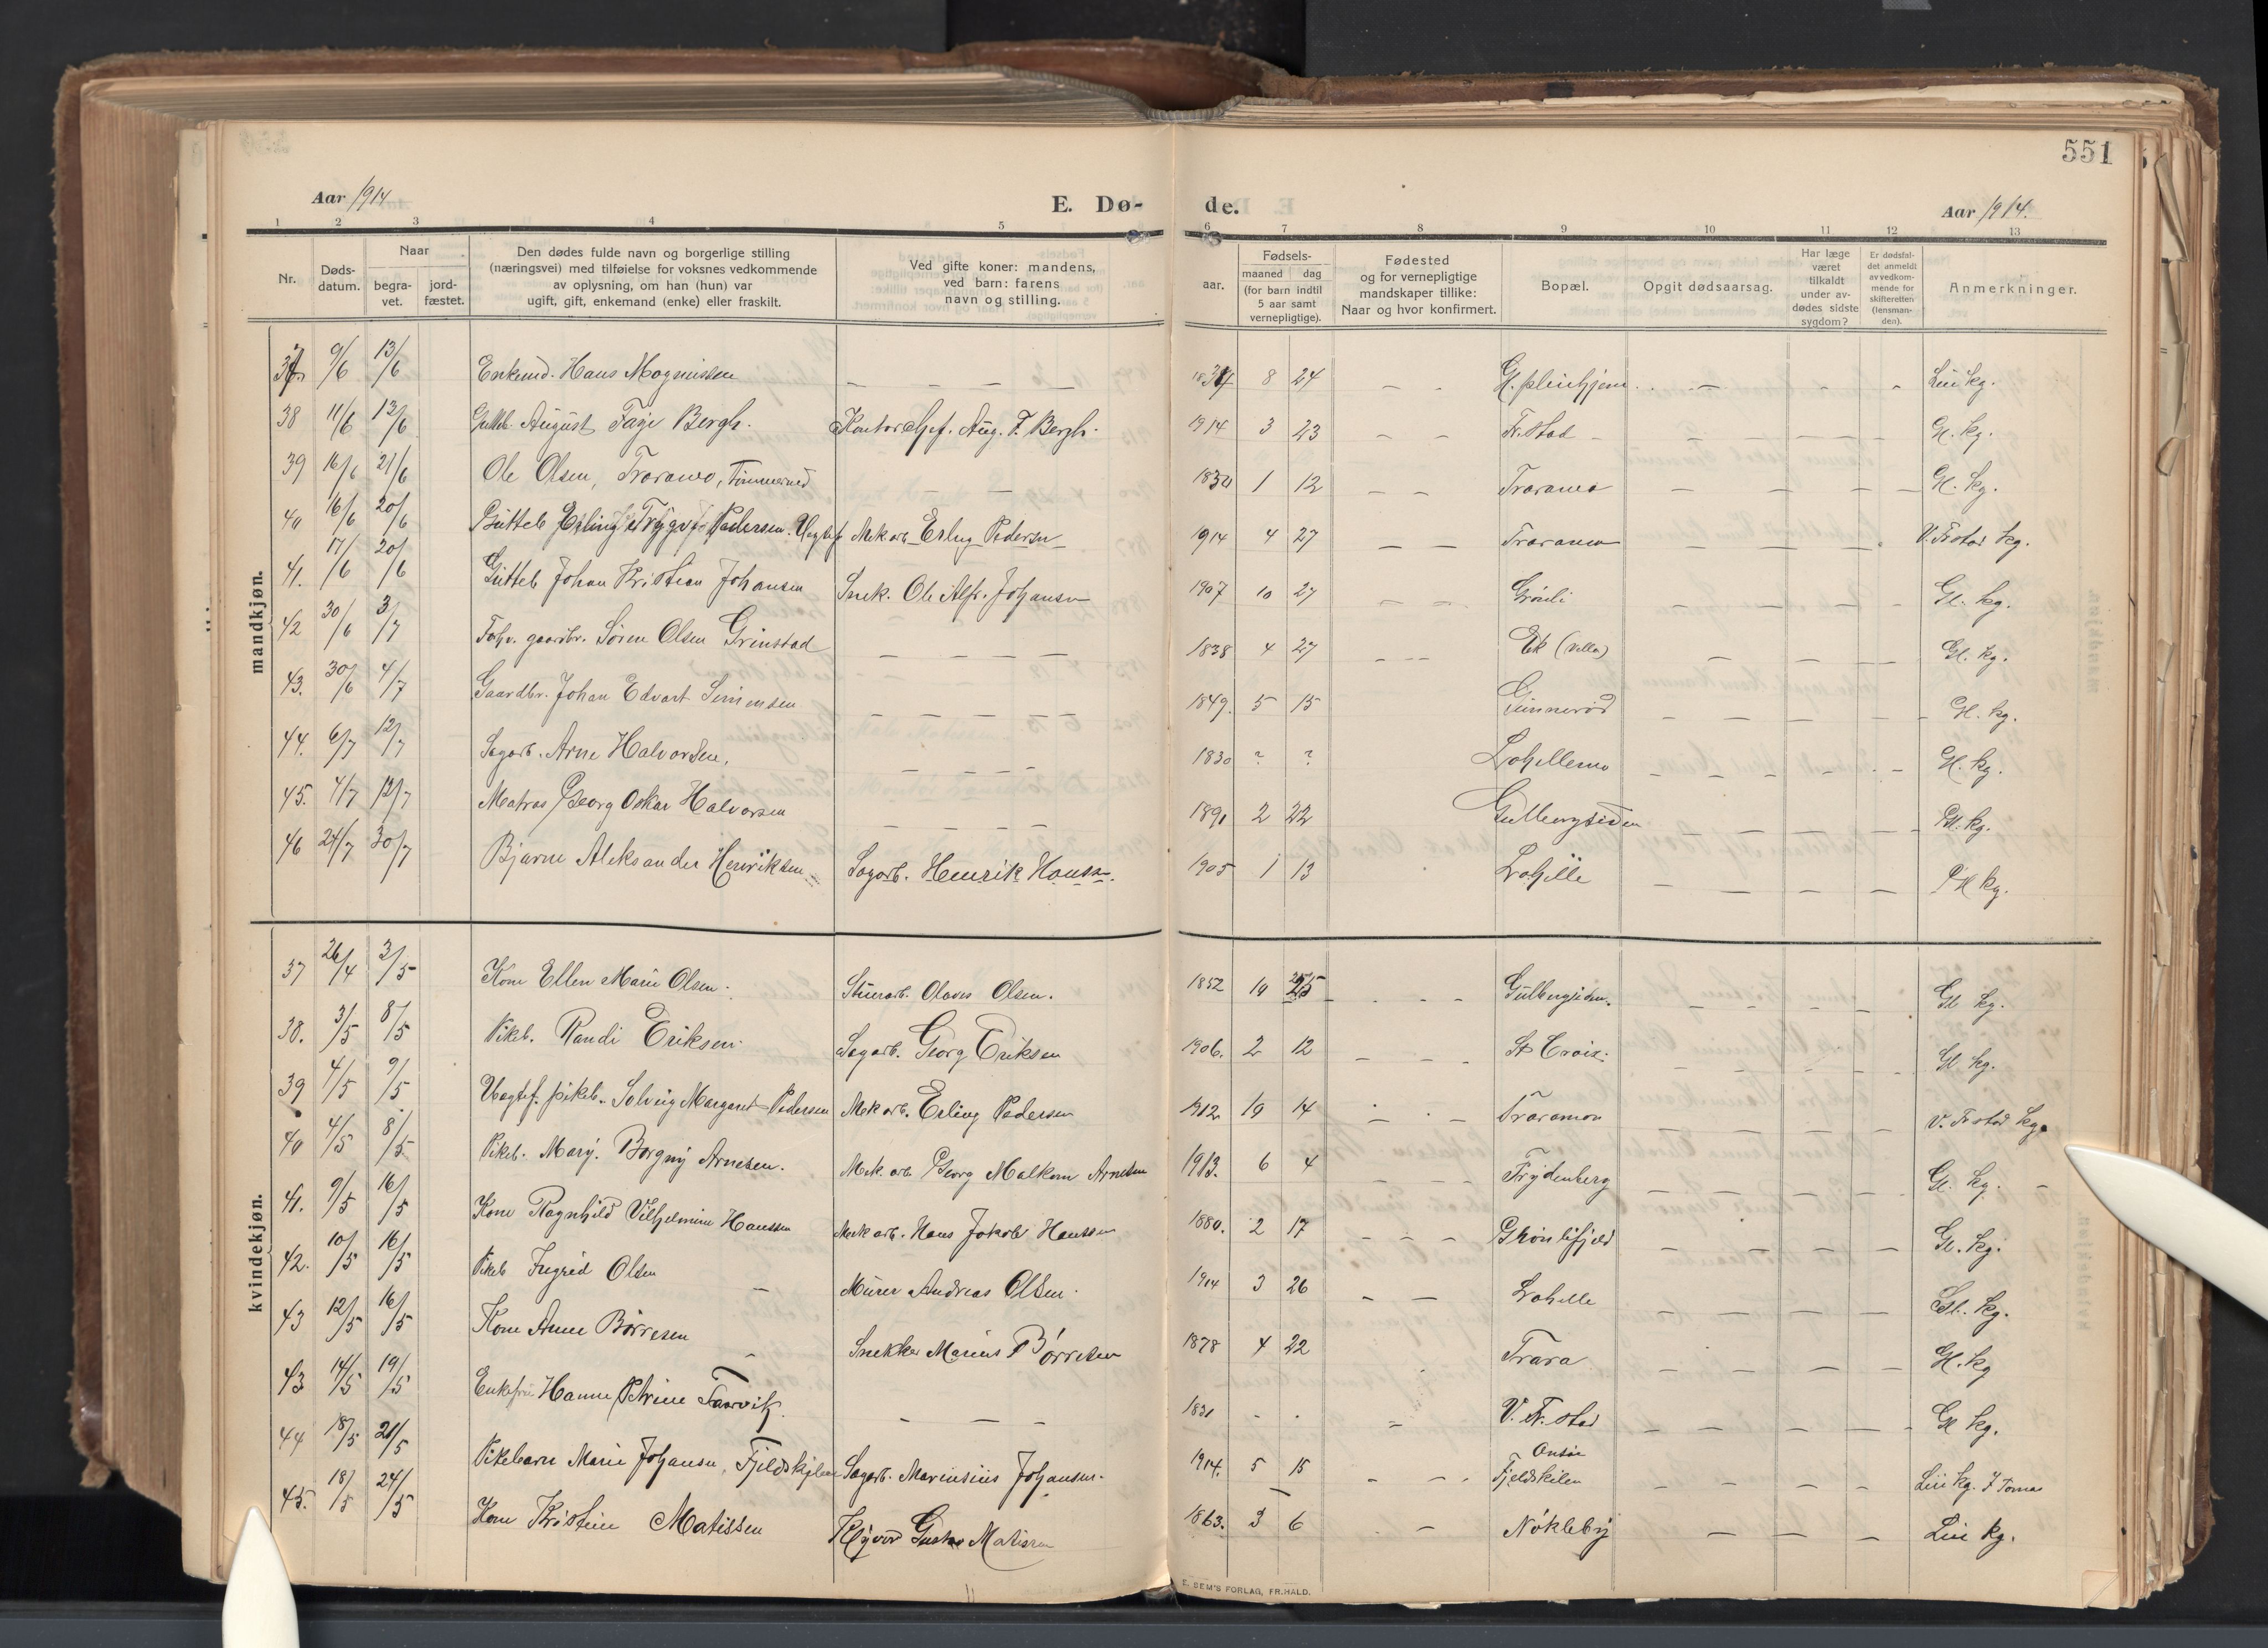 551
Aar 1914
E. Dø-
de.
Aar 1914.
1 2 3 4 5 6 7 8 9 10 11 12 13
Nr.
Døds-
datum.
Naar
begra-
vet.
jord-
fæstet.
Den dødes fulde navn og borgerlige stilling
(næringsvei) med tilføielse for voksnes vedkommende
av oplysning, om han (hun) var
ugift, gift, enkemand (enke) eller fraskilt.
Ved gifte koner: mandens,
ved barn: farens
navn og stilling.
aar.
Fødsels-
maaned dag
(for barn indtil
5 aar samt
vernepligtige).
Fødested
og for vernepligtige
mandskaper tillike:
Naar og hvor konfirmert.
Bopæl.
Opgit dødsaarsag.
Har læge
været
tilkaldt
under av-
dødes sidste
sygdom?
Er dødsfal-
det anmeldt
av vedkom-
mende for
skifteretten
(lensman-
den).
Anmerkninger.
mandkjøn.
37 9/6 13/6 Enkemd. Hans Magnussen — — — — 8 24 — - Gl. pleiehjem - — - - -
38 11/6 13/6 Gutteb. August Fage Bergh. Kontorchef. Aug. F. Bergh. 1914 3 23 — — Fr.stad — — — — — Gl. kg.
39 16/6 21/6 Ole Olsen, Traramo, Tømmermd — — 1830 1 12 — — Traramo — — — — — Gl. kg.
40 16/6 20/6 Gutteb Erling Trygve Pedersen. Uegtef Mek arb Erling Pedersen 1914 4 27 — — Traramo — — — — V. Frstad kg.
41. 17/6 20/6 Gutteb Johan Kristian Johansen Snek. Ole Alfr. Johansen 1907 10 27 — — Grönli — — — — Gl. kg.
42 30/6 3/7 Forhv. gaardbr. Sören Olsen Grimstad — — — — 1838 4 27 — — Ek (villa) — — — — Gl. kg.
43. 30/6 4/7 Gaardbr. Johan Edvart Simensen — — — — 1849. 5 15 Gunneröd — — — — — Gl. kg.
44. 6/7 12/7 Sagarb. Arne Halvorsen, — — — — 1830 ? ? Lahellemo — — — — - — Gl. kg.
45. 4/7 12/7 Matros Georg Oskar Halvorsen — — — — 1891 2 22 Gullbergsiden — — — — — Gl. kg.
46 24/7 30/7 Bjarne Aleksander Henriksen Sagarb. Henrik Hansen. 1905 1 13 Lahelle — — — — — Gl kg.
kvindekjøn.
37 26/4 3/5 Kone Ellen Marie Olsen. Stuerarb. Olaves Olsen. 1852 10 25 - - - Gulbergsiden. — — - - — Gl kg.
38. 3/5 8/5 Pikeb. Randi Eriksen. Sagarb. Georg Eriksen 1906. 2 12 — — — St Croix. — — — — Gl kg.
39 4/5 9/5 Uegtef. pikeb. Solveig Margaret Pedersen Mek arb. Erling Pedersen 1912 10 14 - - — Traramoen — — — — — V. Frstad kg.
40 4/5 8/5 Pikeb. Mary. Borgny Arnesen. Mek. arb Georg Malkom Arnesen 1913. 6 4 — — — Frydenberg — — — — Gl. kg.
41. 9/5 16/5 Kone Ragnhild Vilhelmine Hanssen Mek arb. Hans Jakob Hanssen 1880. 2 17 — — — Grönlifjeld — — — — — Gl. kg.
42. 10/5 16/5 Pikeb Ingrid Olsen — Murer Andreas Olsen. 1914 3 26 — — Lahelle — — — — — Gl. kg.
43 12/5 16/5 Kone Anne Börresen — Snekker Marius Börresen 1878 4 22 Trara — - — — — Gl. kg
43 14/5 19/5 Enkefru Hanne Petrine Taarvik — — — 1831 - - — V. Fr. stad — — — — — Gl kg.
44 18/5 21/5 Pikebarn Marie Johansen, Fjeldskilen Sagarb. Marinsius Johansen. 1914. 5 15 — — - Onsöe
Fjeldskilen — — — — Lie kg.
45. 18/5 24/5 Kone Kristine Matissen Gustav Matissen 1863. 3 6 - — Nökleby — — — Lie kg.
E. SEM'S FORLAG, FR.HALD.